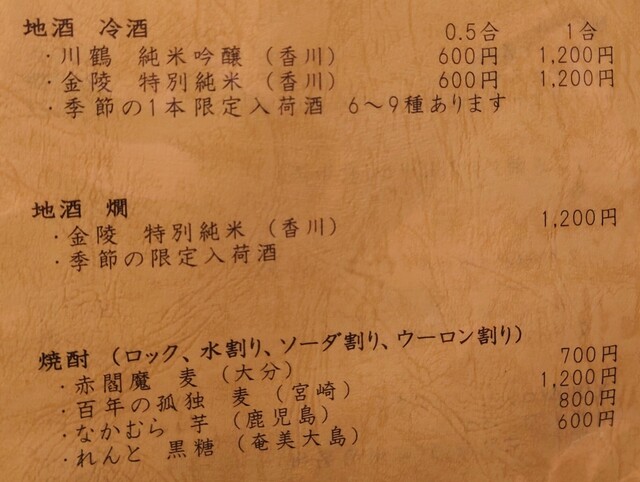 地酒 冷酒 0.5合 1合
・川鶴 純米吟醸（香川） 600円 1,200円
・金陵 特別純米（香川） 600円 1,200円
・季節の1本限定入荷酒 6～9種あります
地酒 燗
・金陵 特別純米（香川） 1,200円
・季節の限定入荷酒
焼酎（ロック、水割り、ソーダ割り、ウーロン割り）
・赤閻魔 麦（大分） 700円
・百年の孤独 麦（宮崎） 1,200円
・なかむら 芋（鹿児島） 800円
・れんと 黒糖（奄美大島） 600円